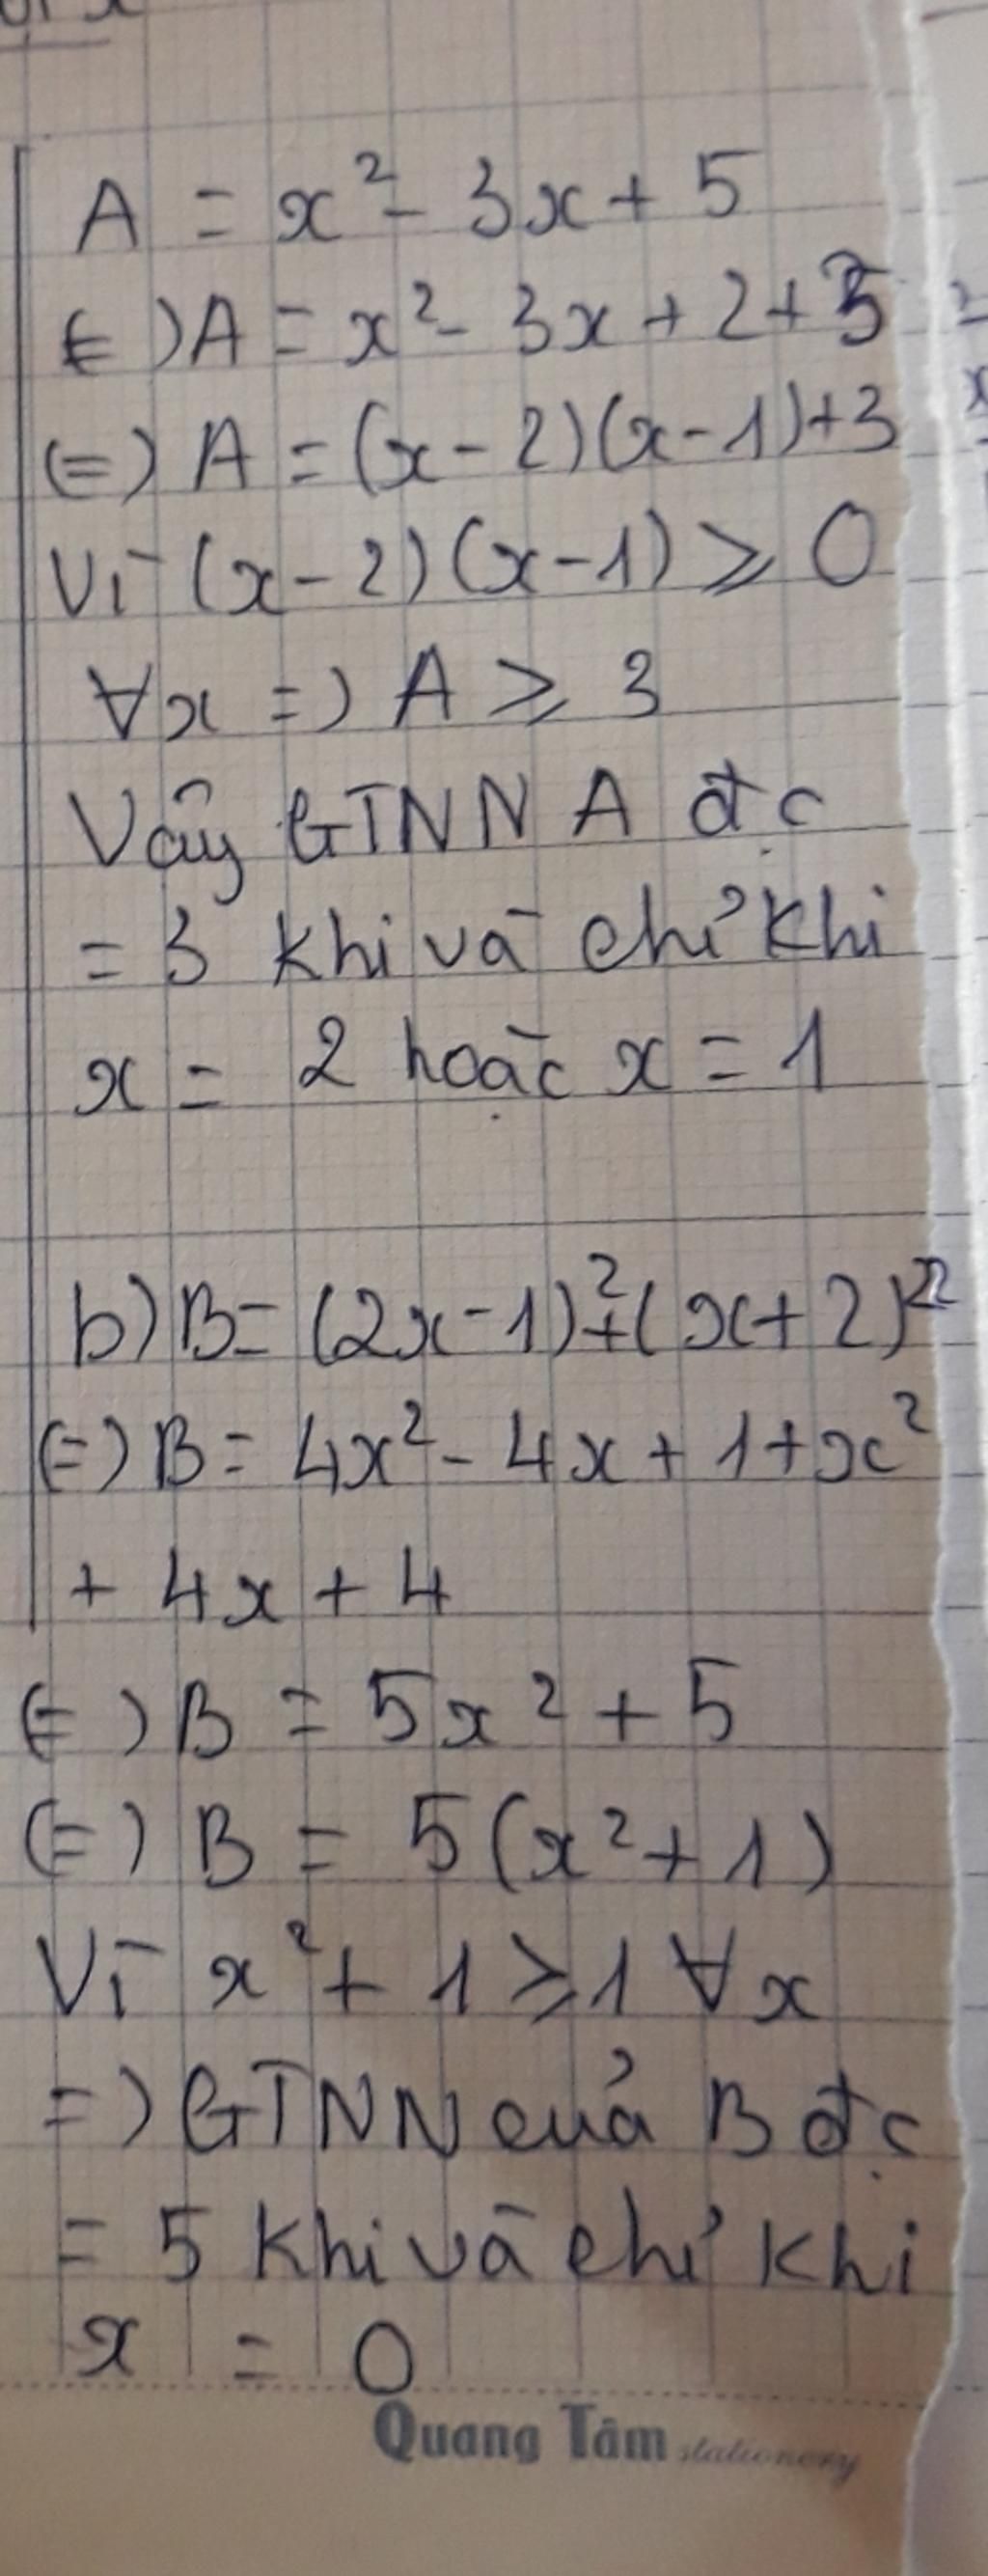 A = x² - 3x + 5
(=) A = x² - 3x + 2 + 3
(=) A = (x - 2)(x - 1) + 3
Vì (x - 2)(x - 1) ⩾ 0
∀x =) A ⩾ 3
Vậy GTNN A đc
= 3 khi và chỉ khi
x = 2 hoặc x = 1
b) B = (2x - 1)² + (x + 2)²
(=) B = 4x² - 4x + 1 + x²
+ 4x + 4
(=) B = 5x² + 5
(=) B = 5(x² + 1)
Vì x² + 1 ⩾ 1 ∀x
=) GTNN của B đc
= 5 khi và chỉ khi
x = 0
Quang Tâm stationery